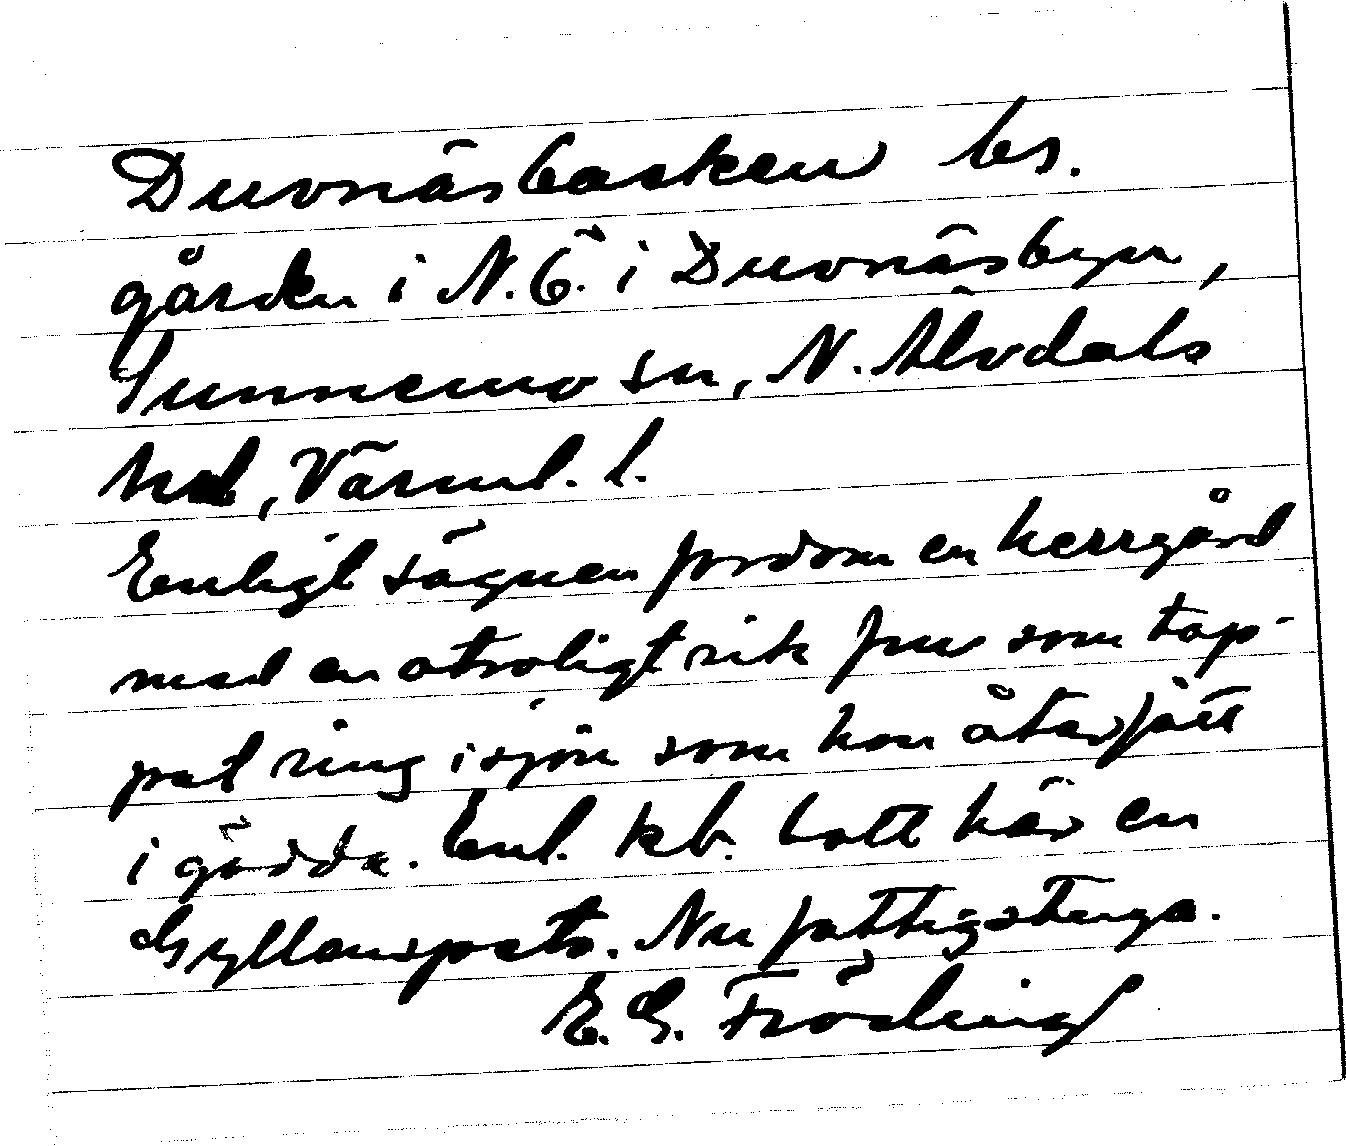 Duvnäsbacken bs.
gården i N.Ö. i Duvnäsbyn,
Sunnemo sn, N. Älvdals
hrd, Värml. l.
Enligt sägnen fordom en herrgård
med en otroligt rik fru som tap-
pat ring i sjön som hon återfått
i gädda. Enl. kb. bott här en
Gyllenspetz. Nu fattigstuga.
E. G. Fröding